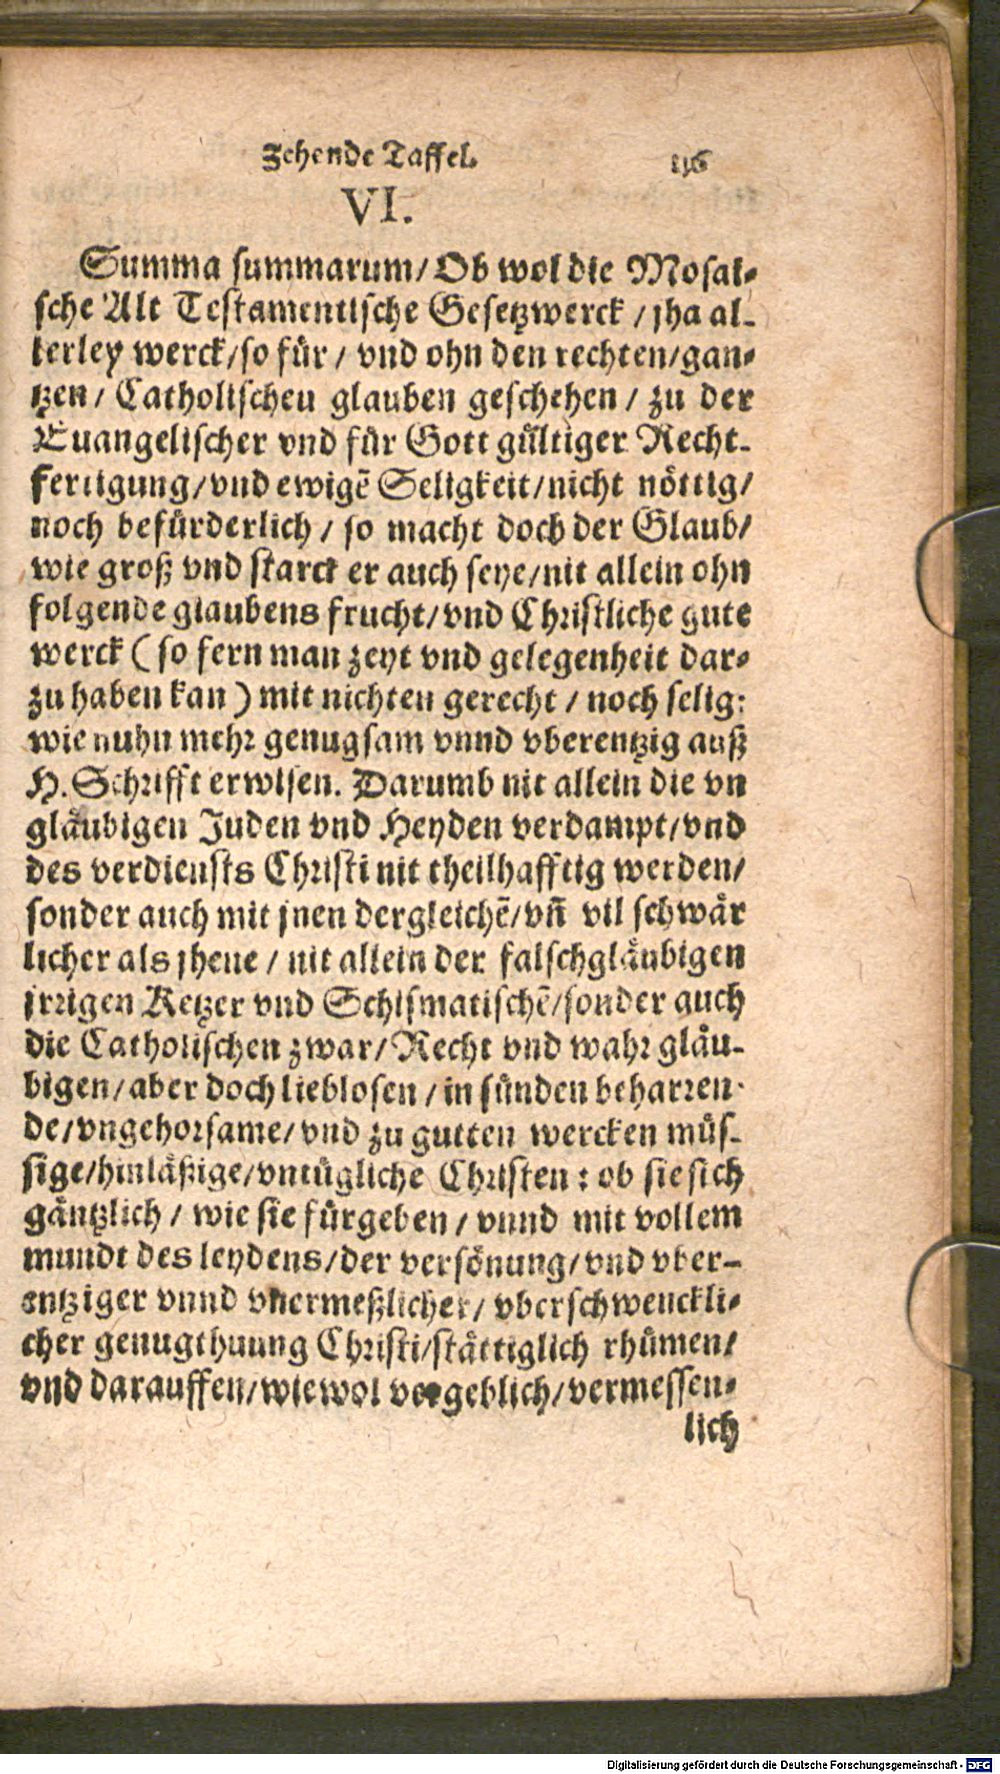 Zehende Taffel. 116
VI.
Summa summarum/ Ob wol die Mosai-
sche Alt Testamentische Gesetzwerck / jha al-
lerley werck/so für / vnd ohn den rechten/gan-
tzen / Catholischen glauben geschehen / zu der
Euangelischer vnd für Gott gültiger Recht-
fertigung/vnd ewigẽ Seligkeit/nicht nöttig/
noch befürderlich / so macht doch der Glaub/
wie groß vnd starck er auch seye/nit allein ohn
folgende glaubens frucht/vnd Christliche gute
werck (so fern man zeyt vnd gelegenheit dar-
zu haben kan) mit nichten gerecht / noch selig:
wie nuhn mehr genugsam vnnd vberentzig auß
H. Schrifft erwisen. Darumb nit allein die vn
gläubigen Juden vnd Heyden verdampt/vnd
des verdiensts Christi nit theilhafftig werden/
sonder auch mit jnen dergleichẽ/vñ vil schwär
licher als jhene / nit allein der falschgläubigen
jrrigen Ketzer vnd Schismatischẽ/sonder auch
die Catholischen zwar/ Recht vnd wahr gläu-
bigen/aber doch lieblosen / in sünden beharren-
de/vngehorsame/vnd zu gutten wercken müs-
sige/hinläßige/vntügliche Christen : ob sie sich
gäntzlich / wie sie fürgeben / vnnd mit vollem
mundt des leydens/der versönung/vnd vber-
entziger vnnd vnermeßlicher/ vberschwenckli-
cher genugthuung Christi/stättiglich rhümen/
vnd darauffen/wiewol vergeblich/vermessen-
lich
Digitalisierung gefördert durch die Deutsche Forschungsgemeinschaft - DFG